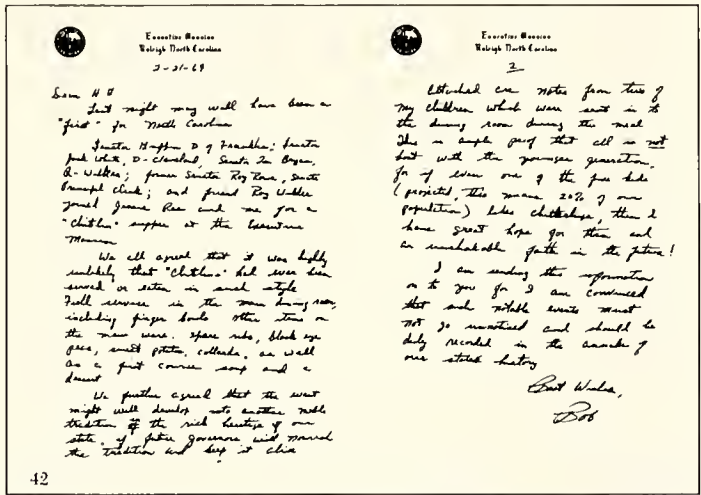 Executive Mansion
Raleigh North Carolina
2-21-69
Dear H B
Last night may well have been a
"first" for North Carolina
Senator Hampton D of Franklin; Senator
Jack White, D-Cleveland, Senator Jim Bryan,
R-Wilkes; former Senator Roy Rowe, Senate
Principal Clerk; and friend Roy Wilder
joined Jessie Rae and me for a
"Chitlin" supper at the Executive
Mansion
We all agreed that it was highly
unlikely that "Chitlins" had ever been
served or eaten in such style
Full service in the main dining room,
including finger bowls other items on
the menu were. spare ribs, black eye
peas, sweet potato, collards, as well
as a first course soup and a
desert
We further agreed that the event
might well develop into another noble
tradition of the rich heritage of our
state, if future governors will nourish
the tradition and keep it alive
Executive Mansion
Raleigh North Carolina
2
Attached are notes from two of
my children which were sent in to
the dining room during the meal
This is ample proof that all is not
lost with the younger generation,
for if even one of the five kids
(projected, this means 20% of our
population) likes chitterlings, then I
have great hope for them and
an unshakable faith in the future!
I am sending the information
on to you for I am convinced
that such notable events must
not go unnoticed and should be
duly recorded in the annals of
our states history
Best Wishes,
Bob
42